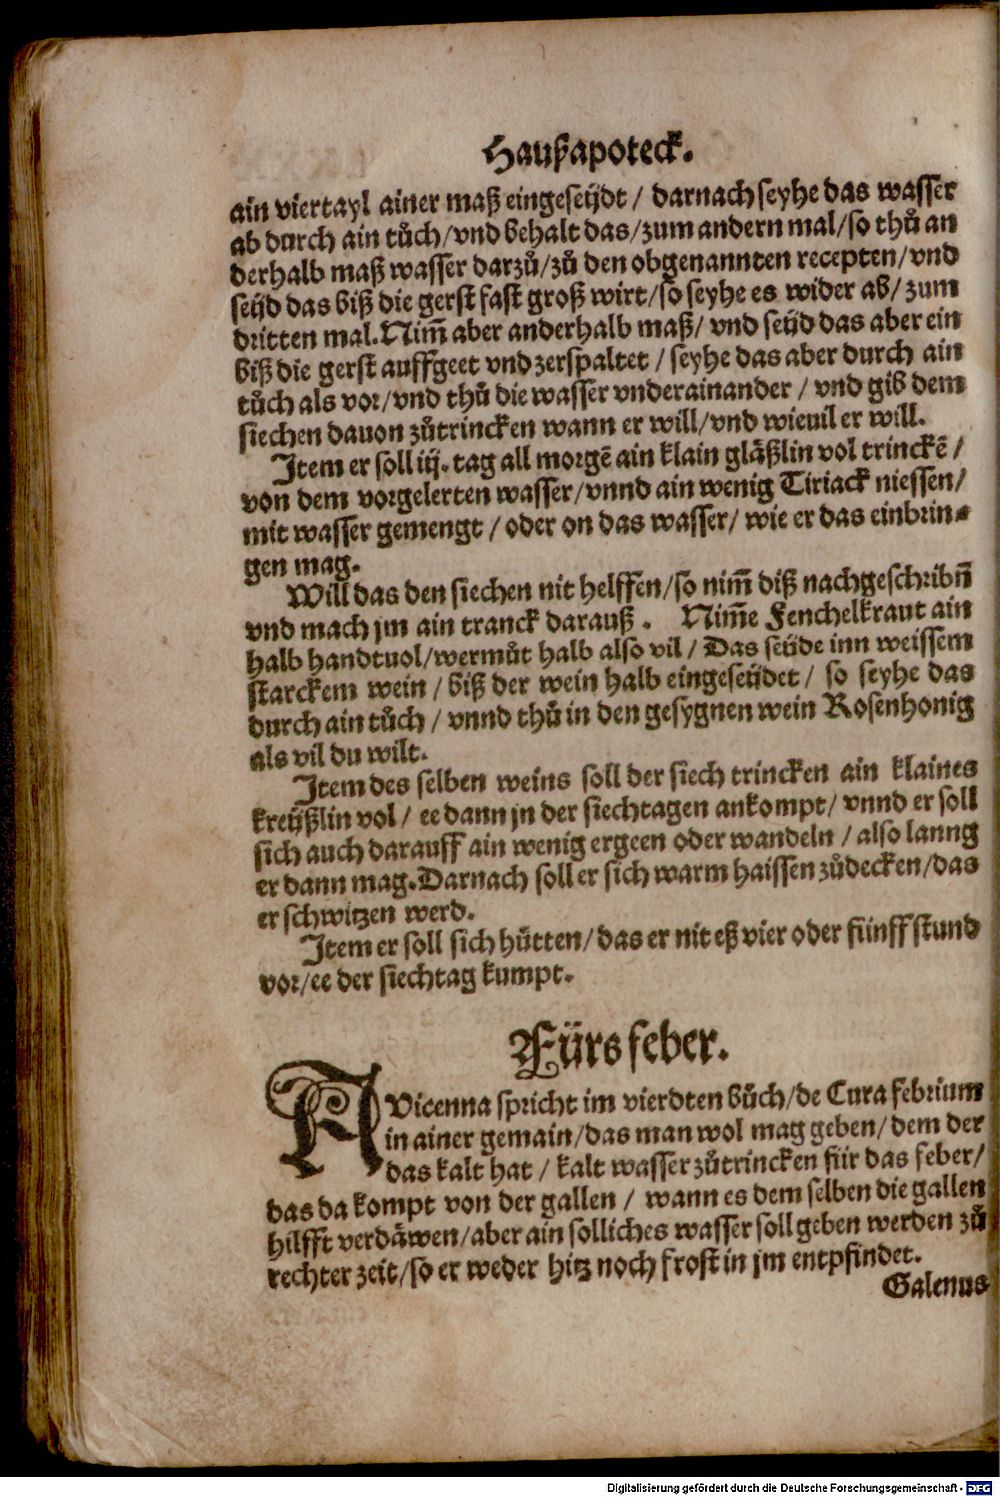 Haußapoteck.
ain viertayl ainer maß eingeseÿdt / darnach seyhe das wasser
ab durch ain tůch/vnd behalt das/zum andern mal/so thů an
derhalb maß wasser darzů/zů den obgenannten recepten/vnd
seÿd das biß die gerst fast groß wirt/so seyhe es wider ab/zum
dritten mal. Nim̄ aber anderhalb maß/ vnd seÿd das aber ein
biß die gerst auffgeet vnd zerspaltet / seyhe das aber durch ain
tůch als vor/vnd thů die wasser vnderainander / vnd gib dem
siechen dauon zůtrincken wann er will/vnd wieuil er will.
Item er soll iij. tag all morgē ain klain gläßlin vol trinckē /
von dem vorgelerten wasser/vnnd ain wenig Tiriack niessen/
mit wasser gemengt / oder on das wasser/ wie er das einbrin⸗
gen mag.
Will das den siechen nit helffen/so nim̄ diß nachgeschribn̄
vnd mach jm ain tranck darauß . Nim̄e Fenchelkraut ain
halb handtuol/wermůt halb also vil / Das seÿde inn weissem
starckem wein / biß der wein halb eingeseÿdet / so seyhe das
durch ain tůch / vnnd thů in den gesygnen wein Rosenhonig
als vil du wilt.
Item des selben weins soll der siech trincken ain klaines
kreÿßlin vol / ee dann jn der siechtagen ankompt/ vnnd er soll
sich auch darauff ain wenig ergeen oder wandeln / also lanng
er dann mag. Darnach soll er sich warm haissen zůdecken/das
er schwitzen werd.
Item er soll sich hütten/das er nit eß vier oder fünff stund
vor/ee der siechtag kumpt.
Fürs feber.
AVicenna spricht im vierdten bůch/de Cura febrium
in ainer gemain/das man wol mag geben/dem der
das kalt hat / kalt wasser zůtrincken für das feber/
das da kompt von der gallen / wann es dem selben die gallen
hilfft verdäwen/aber ain solliches wasser soll geben werden zů
rechter zeit/so er weder hitz noch frost in jm entpfindet.
Galenus
Digitalisierung gefördert durch die Deutsche Forschungsgemeinschaft - DFG